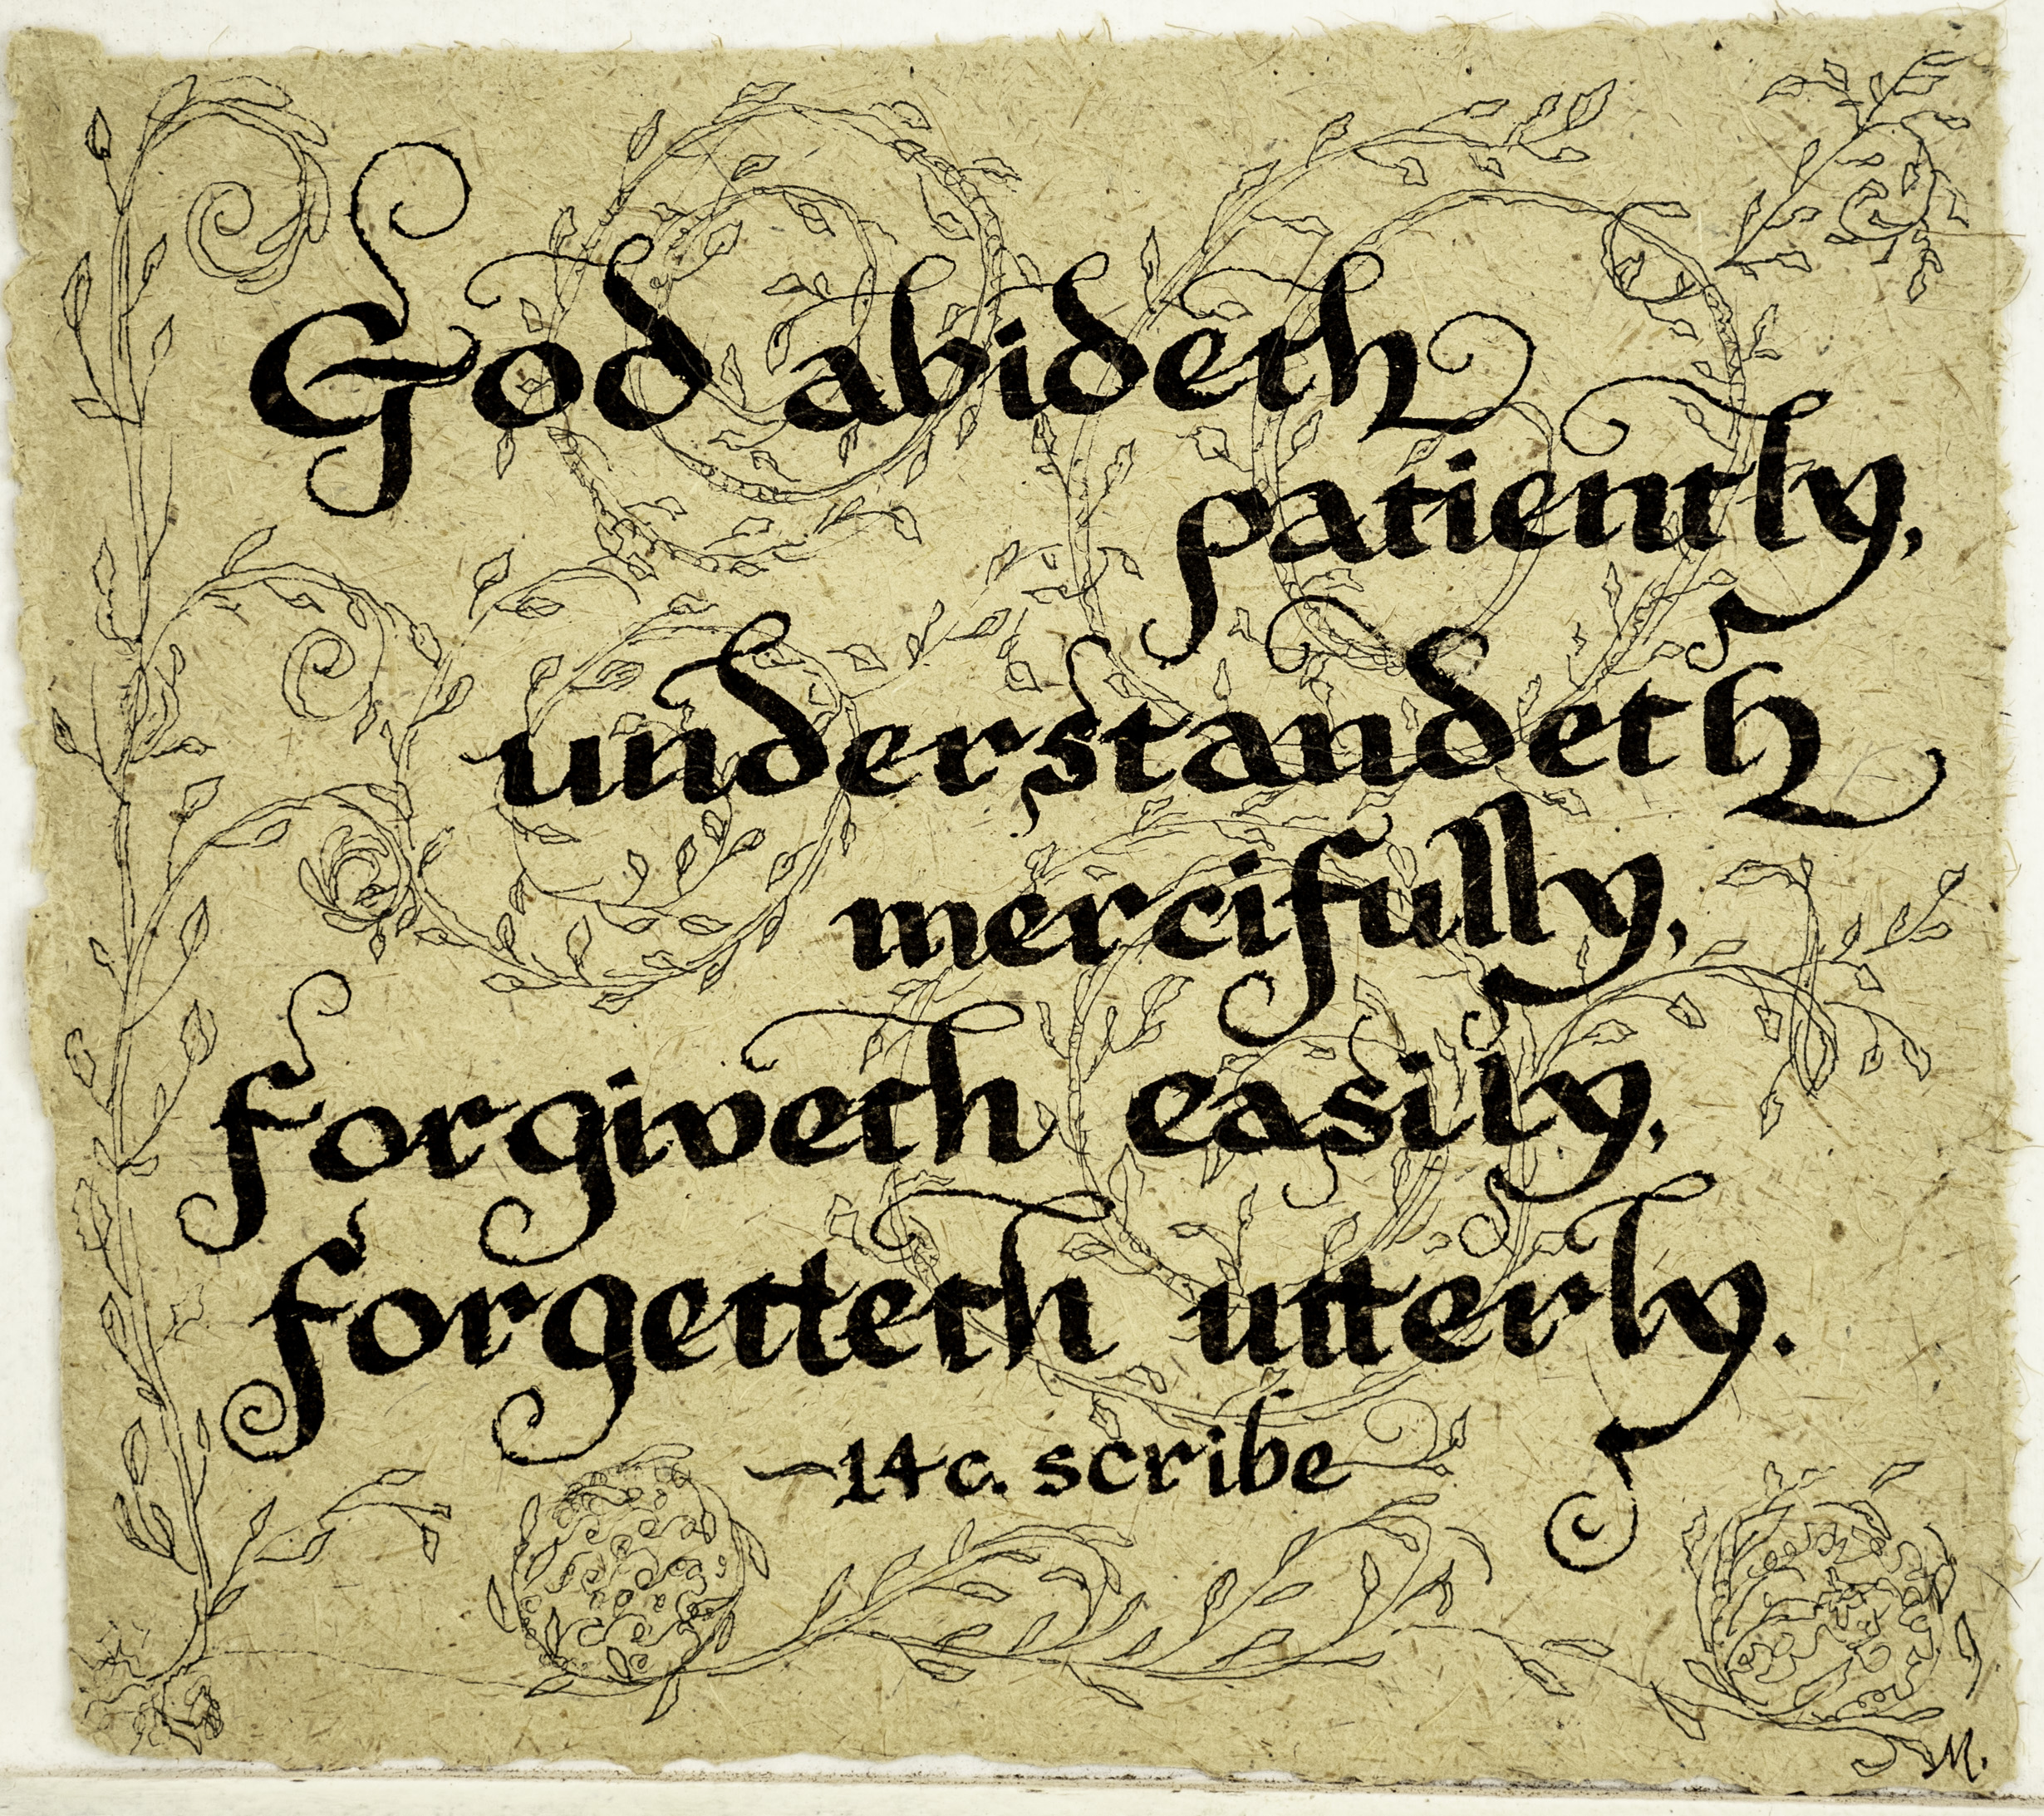 God abideth
patiently,
understandeth
mercifully,
forgiveth easily,
forgetteth utterly.
~14c. scribe
M.